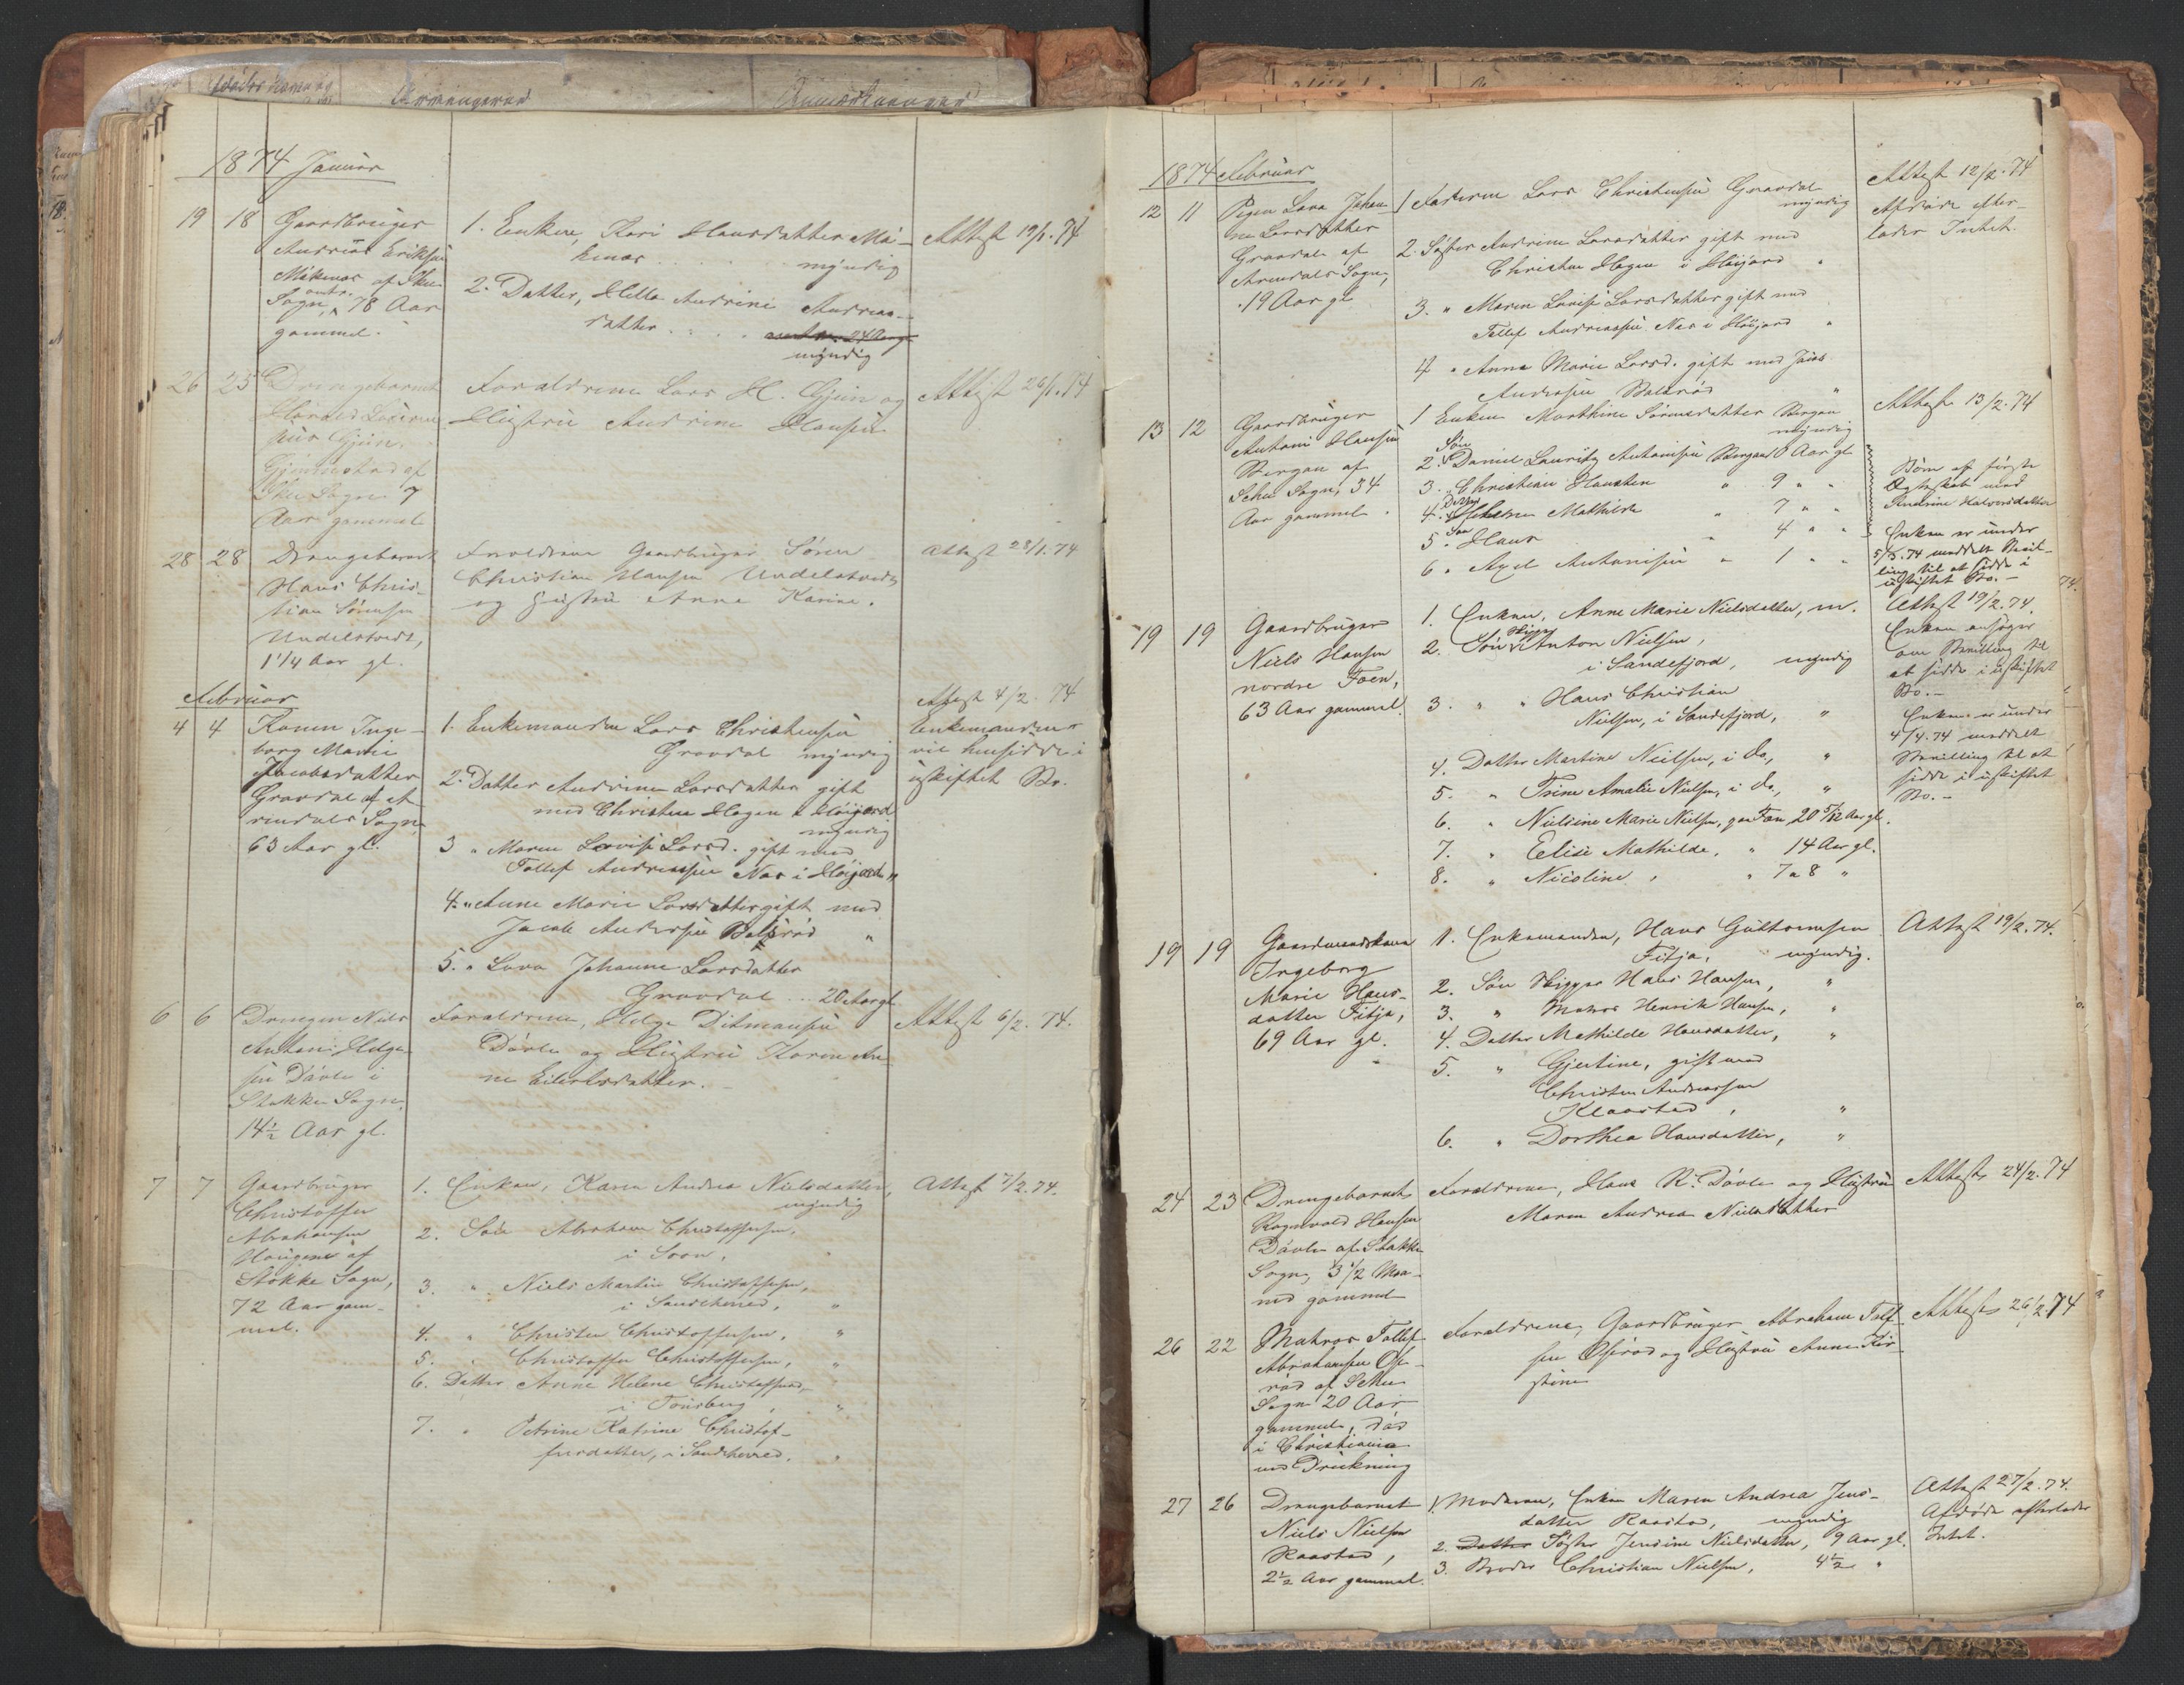 1874 Januar
19 18 Gaardbruger
Andreas Eriksen
Mökenæs af Skee
Sogn, 78 Aar
gammel.
1. Enken, Kari Hansdatter Mö-
kenæs . . . . myndig
2. Datter, Helle Andrine Andreas-
datter . . . .
myndig
Attest 19/1. 74
26 25 Drengebarnet
Gjein,
af
Skee Sogn 7
Aar gammel
Forældrene Lars H. Gjein og
Hustru Andrine Hansen
Attest 26/1. 74
28 28 Drengebarnet
Hans Chris-
tian Sörensen
Undelstvedt,
1 1/4 Aar gl.
Forældrene Gaardbruger Sören
Christian Hansen Undelstvedt
og Hustru Anne Karine.
Attest 28/1. 74
Februar
4 4 Konen Inge-
borg Marie
Jacobsdatter
Gravdal af A-
rendals Sogn
63 Aar gl.
1. Enkemanden Lars Christensen
Gravdal myndig
2. Datter Andrine Larsdatter gift
med Christen Hagen i Höijord
myndig
3 " Maren Lovise Larsd. gift med
Tollef Andreassen Næs i Höijord "
4. " Anne Marie Larsdatter gift med
Jacob Andersen Bolsröd "
5. " Lava Johanne Larsdatter
Gravdal .. 20 Aar gl
Attest 4/2. 74
Enkemanden
vil hensidde i
uskiftet Bo.
6 6 Drengen Niels
Anton Helge-
sen Dävle i
Stokke Sogn,
14 1/2 Aar gl.
Forældrene, Helge Ditmansen
Dövle og Hustru Karen An-
ne Eilertsdatter.
Attest 6/2. 74.
7 7 Gaardbruger
Christoffer
Abrahamsen
Haugene af
Stokke Sogn,
72 Aar gam-
mel.
1. Enken, Karen Andrea Nielsdatter,
myndig
2. Sön Abraham Christoffersen,
i Soon,
3. " Niels Martin Christoffersen,
i Sandeherred, "
4. " Christen Christoffersen, "
5. " Christoffer Christoffersen, "
6. Datter Anne Helene Christoffersd,
i Tönsberg, "
7. " Petrine Katrine Christof-
fersdatter, i Sandeherred, "
Attest 7/2. 74.
1874 Februar
12 11 Pigen Lava Johan-
ne Larsdatter
Gravdal af
Arendals Sogn,
19 Aar gl
1 Faderen Lars Christensen Gravdal
myndig
2. Söster Andrine Larsdatter gift med
Christen Hagen i Höijord "
3. " Maren Lovise Larsdatter gift med
Tollef Andreassen Næs i Höijord "
4 " Anna Marie Larsd. gift med
Andersen Bolsröd "
Attest 12/2. 74
Afdöde efter-
lader Intet.
13 12 Gaardbruger
Antoni Hansen
Bergan af
Schee Sogn, 34
Aar gammel.
1 Enken Marthine Sörensdatter Bergan
myndig
2. Sön Daniel Lauritz Antonisen Bergan 10 Aar gl
3. " Christian Haagten " 9 " "
4. Datter Mathilde " 7 " "
5 Sön Hans " 4 " "
6 " Axel Antonisen " 1 " "
Attest 13/2. 74
Börn af förste
Ægteskab med
Andrine Halvorsdatter
Enken er under
5/3. 74 meddelt Bevil-
ling til at sidde i
uskiftet Bo.-
19 19 Gaardbruger
Niels Hansen
nordre Foen,
63 Aar gammel.
1. Enken, Anne Marie Nielsdatter, m.
2. Sön Skipper Anton Nielsen,
i Sandefjord, myndig
3. " " Hans Christian
Nielsen, i Sandefjord, "
4. Datter Martine Nielsen, i do, "
5. " Trine Amalie Nielsen, i do, "
6. " Nielsine Marie Nielsen, paa Foen 20 5/12 Aar gl.
7. " Elise Mathilde, " 14 Aar gl.
8. " Nicoline, " 7 a 8 "
Attest 19/2. 74.
Enken ansöger
om Bevilling til
at sidde i uskiftet
Bo.-
Enken er under
4/4. 74 meddelt
Bevilling til at
sidde i uskiftet
Bo.-
19 19 Gaardmandskone
Ingeborg
Marie Hans-
datter Fitja,
69 Aar gl.
1. Enkemanden, Hans Guttormsen
Fitja, myndig.
2. Sön Skipper Hans Hansen, "
3. " Matros Henrik Hansen, "
4. Datter Mathilde Hansdatter, "
5. " Gjertine, gift med
Christen Andreassen
Klaastad, "
6. " Dorthea Hansdatter, "
Attest 19/2. 74.
24 23 Drengebarnet
Ragnvald Hansen
Dövle af Stokke
Sogn, 3 1/2 Maa-
ned gammel
Forældrene, Hans R. Dövle og Hustru
Maren Andrea Nielsdatter
Attest 24/2. 74
26 22 Matros Tollef
Abrahamsen Ose-
röd af Schee
Sogn 20 Aar
gammel, död
i Christiania
ved Drukning
Forældrene, Gaardbruger Abraham Tolf-
sen Oseröd og Hustru Anne Kir-
stine
Attest 26/2. 74
27 26 Drengebarnet
Niels Nielsen
Raastad,
2 1/2 Aar gammel.
1. Moderen, Enken Maren Andrea Jens-
datter Raastad, myndig
2. Datter Söster Jensine Nielsdatter, 9 Aar gl.
3. Broder Christian Nielsen, 4 1/2 "
Attest 27/2. 74.
Afdöde efterlader
Intet.